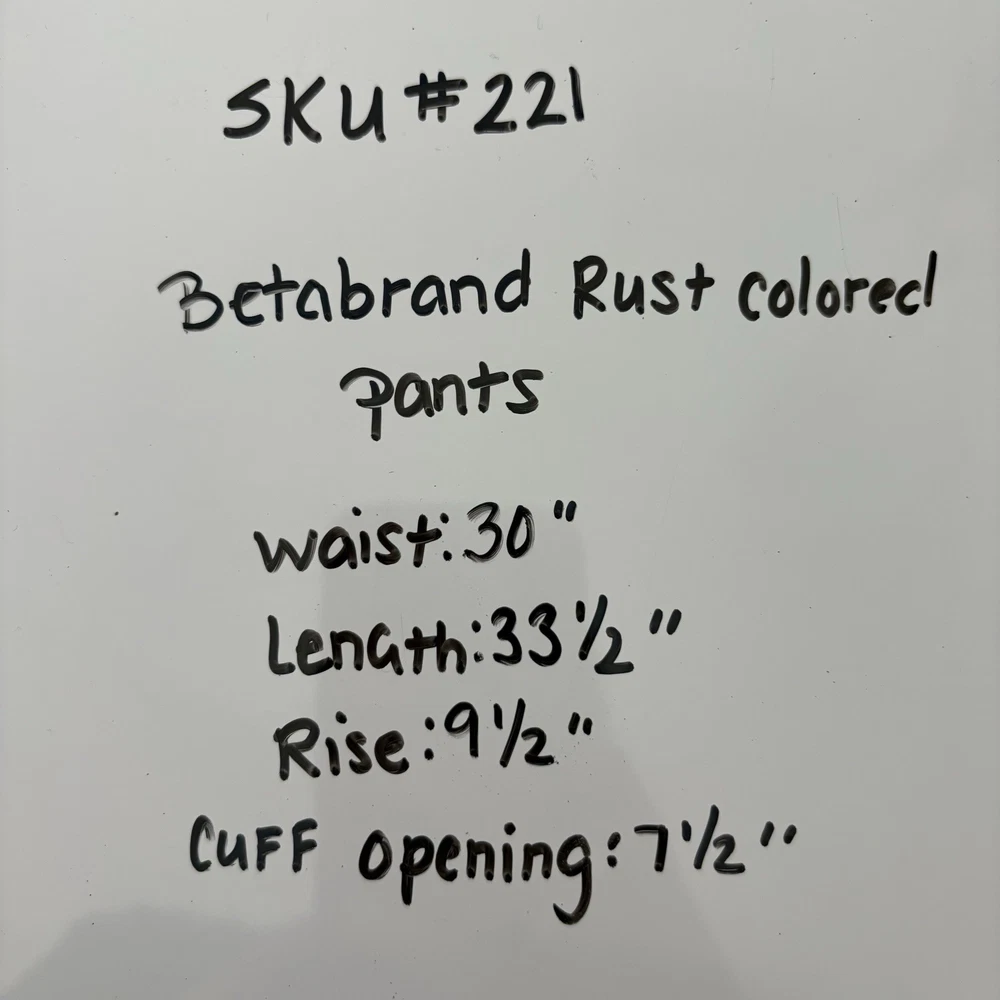 SKU #221
Betabrand Rust colored
pants
waist: 30"
Length: 33 1/2"
Rise: 9 1/2"
Cuff opening: 7 1/2"